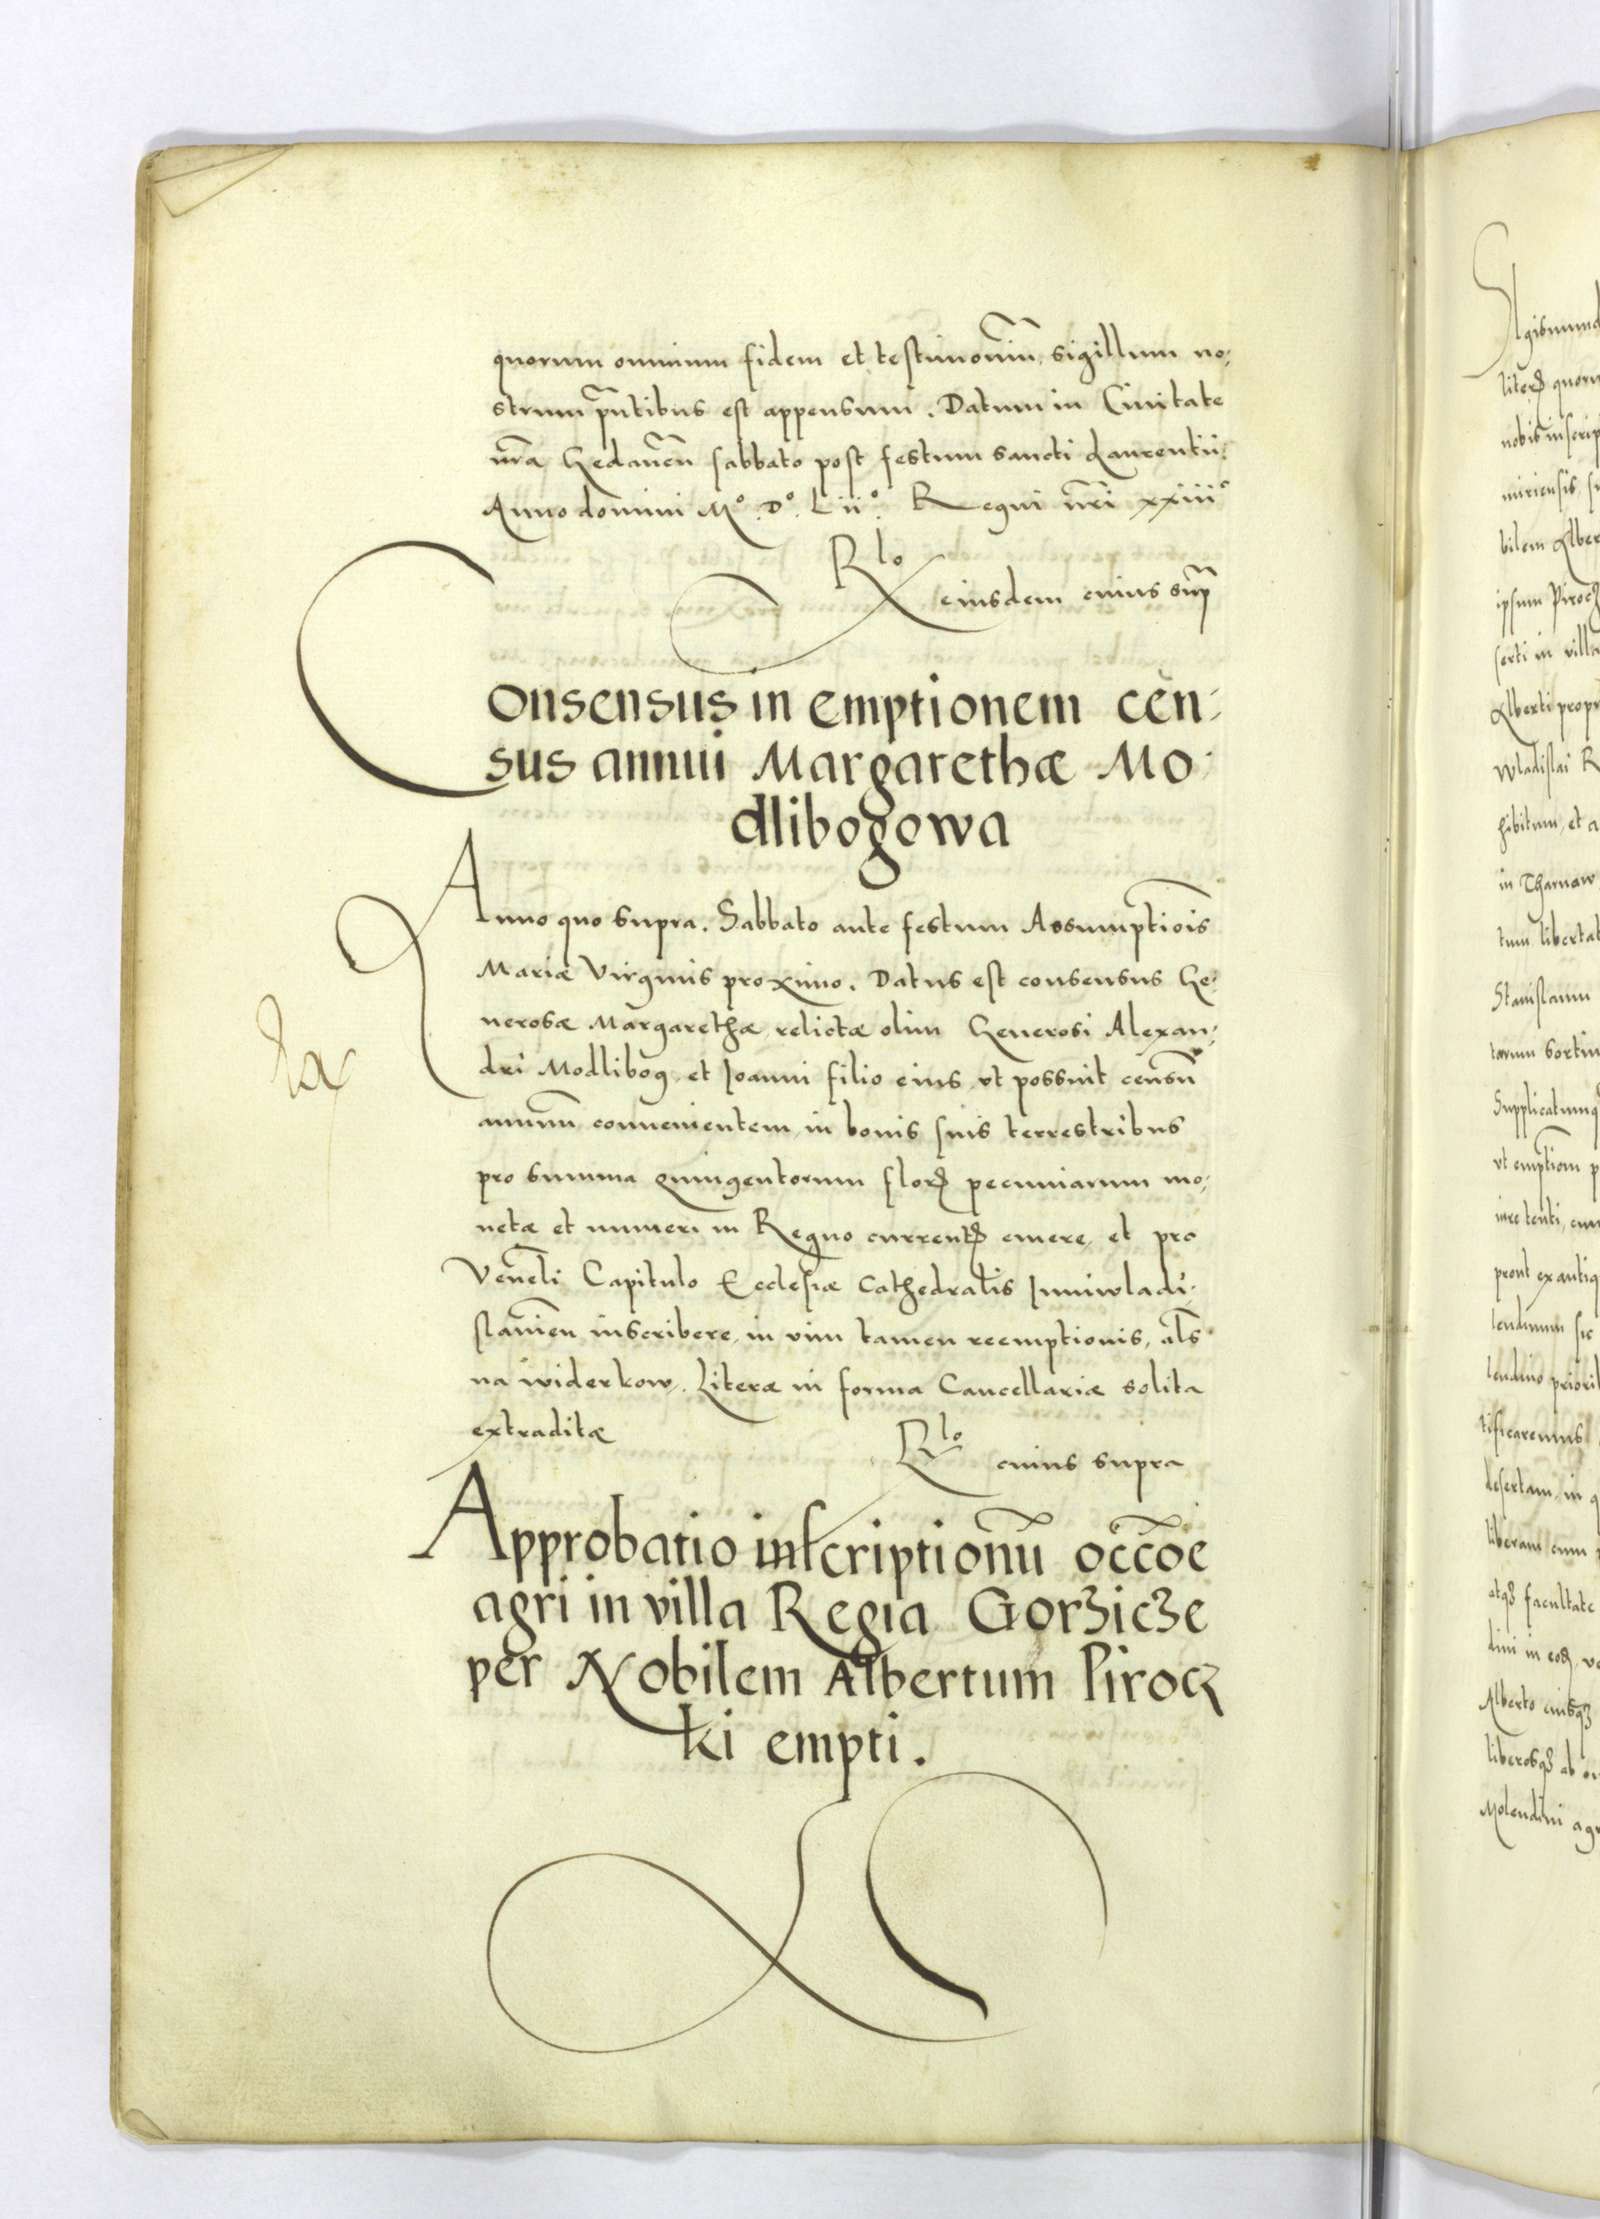 quorum omnium fidem et testimoniũ, sigillum no-
strum p̃ntibus est appensum. Datum in Civitate
nr̃a Gedanẽn sabbato post festum sancti Laurentii.
Anno domini M°. D°. Lii°. Regni nr̃i xxiii°
Rlo eiusdem cuius sup̃
Consensus in emptionem cen-
sus annui Margarethæ Mo-
dlibogowa
Anno quo supra. Sabbato ante festum Assumptiõis
Mariæ Virginis proximo. Datus est consensus Ge-
nerosæ Margarethæ relictæ olim Generosi Alexan-
dri Modlibog, et Joanni filio eius, vt possint censũ
annuũ convenientem, in bonis suis terrestribus
pro summa quingentorum florꝭ pecuniarum mo-
netæ et numeri in Regno currentꝭ emere, et pro
Venẽli Capitulo Ecclesiæ Cathedralis Juniwladi-
slaviẽn inscribere, in vim tamen reemptionis, al̃s
na widerkow. Literæ in forma Cancellariæ solita
extraditæ
Rlo cuius supra
Approbatio inscriptionũ occõe
agri in villa Regia Gorʒicʒe
per Nobilem Albertum Pirocʒ
ki empti.
Sigismund
literꝭ quoru
nobis inscrip
miriensis, su
bilem Alber
ipsum Pirocʒ
serti in villa
Alberti propr
Wladislai R
hibitum, et a
in Tharnaw
tum libertat
Stanislaum
tarum sortiu
Supplicatumqʒ
vt emptiom̃ p
iure tenti, cum
prout ex antiq
lendinum sic
lendino priori
tificaremus
desertam, in q
liberam cum
atqʒ facultate
dini in eoꝭ, ve
Alberto eiusqʒ
liberosqʒ ab om
Molendini agr